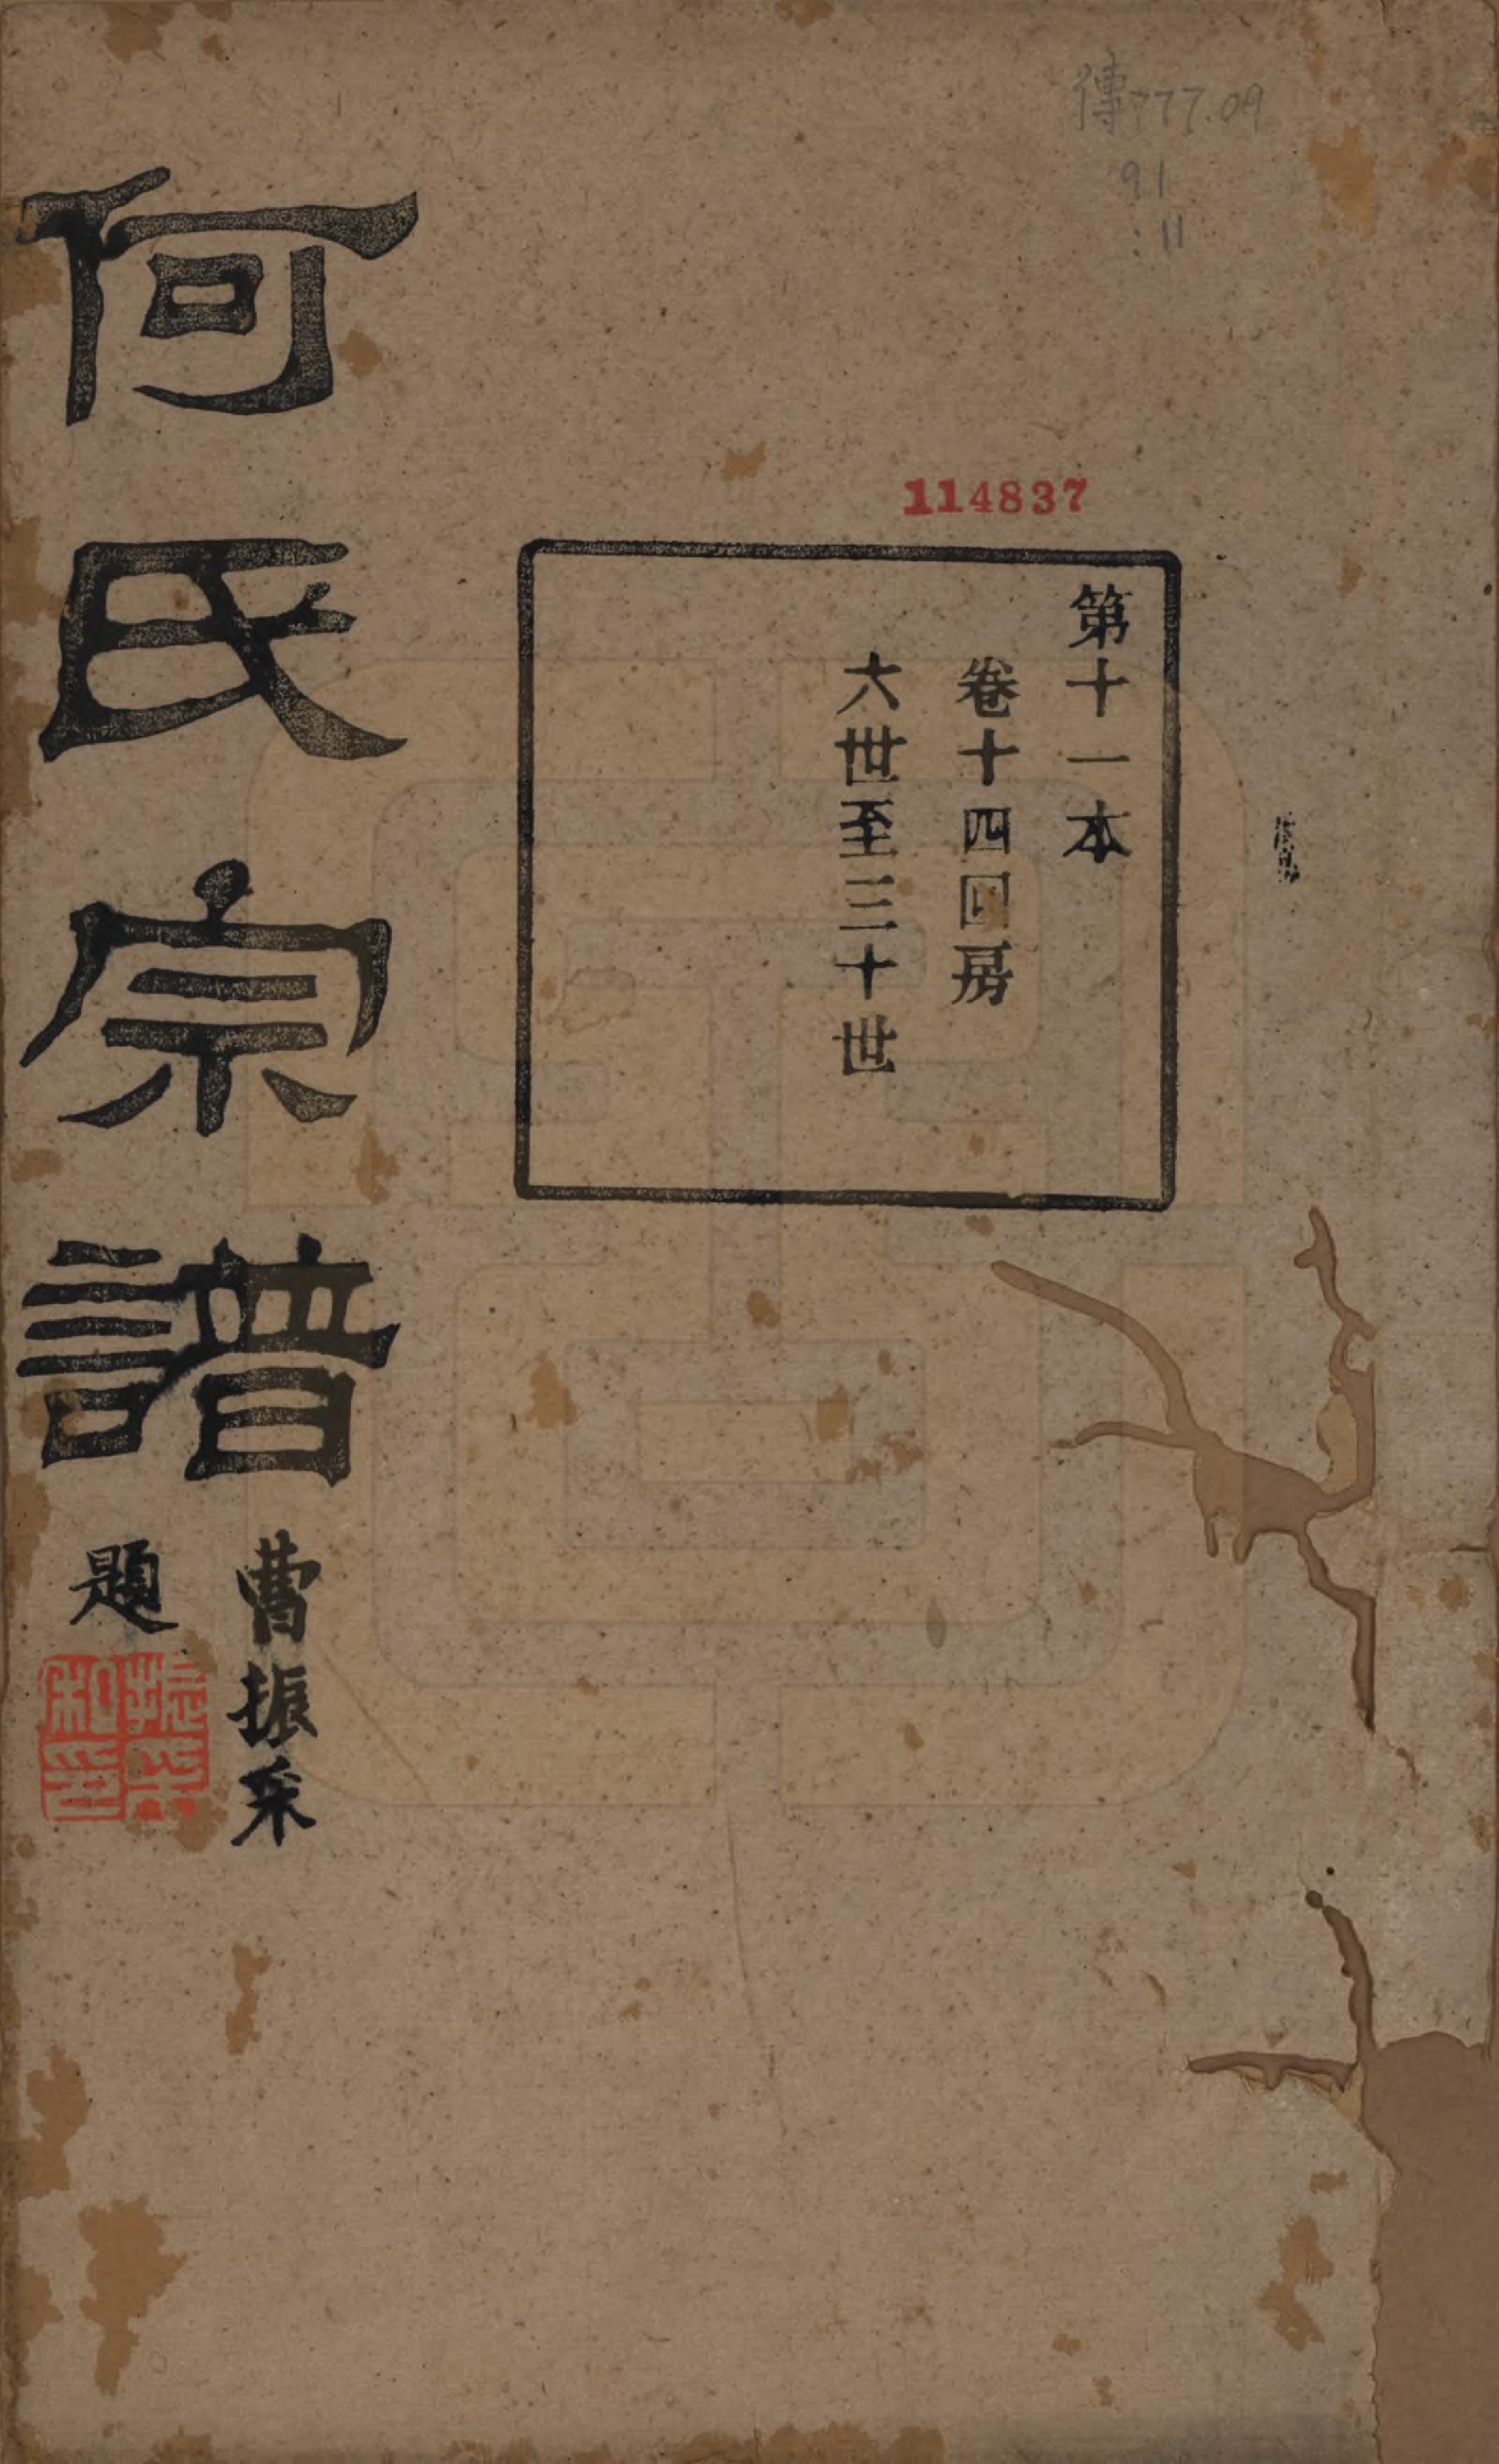 傳777.09
91
:11
114837
第十一本
卷十四四房
六世至三十世
何氏宗譜
曹振采
題